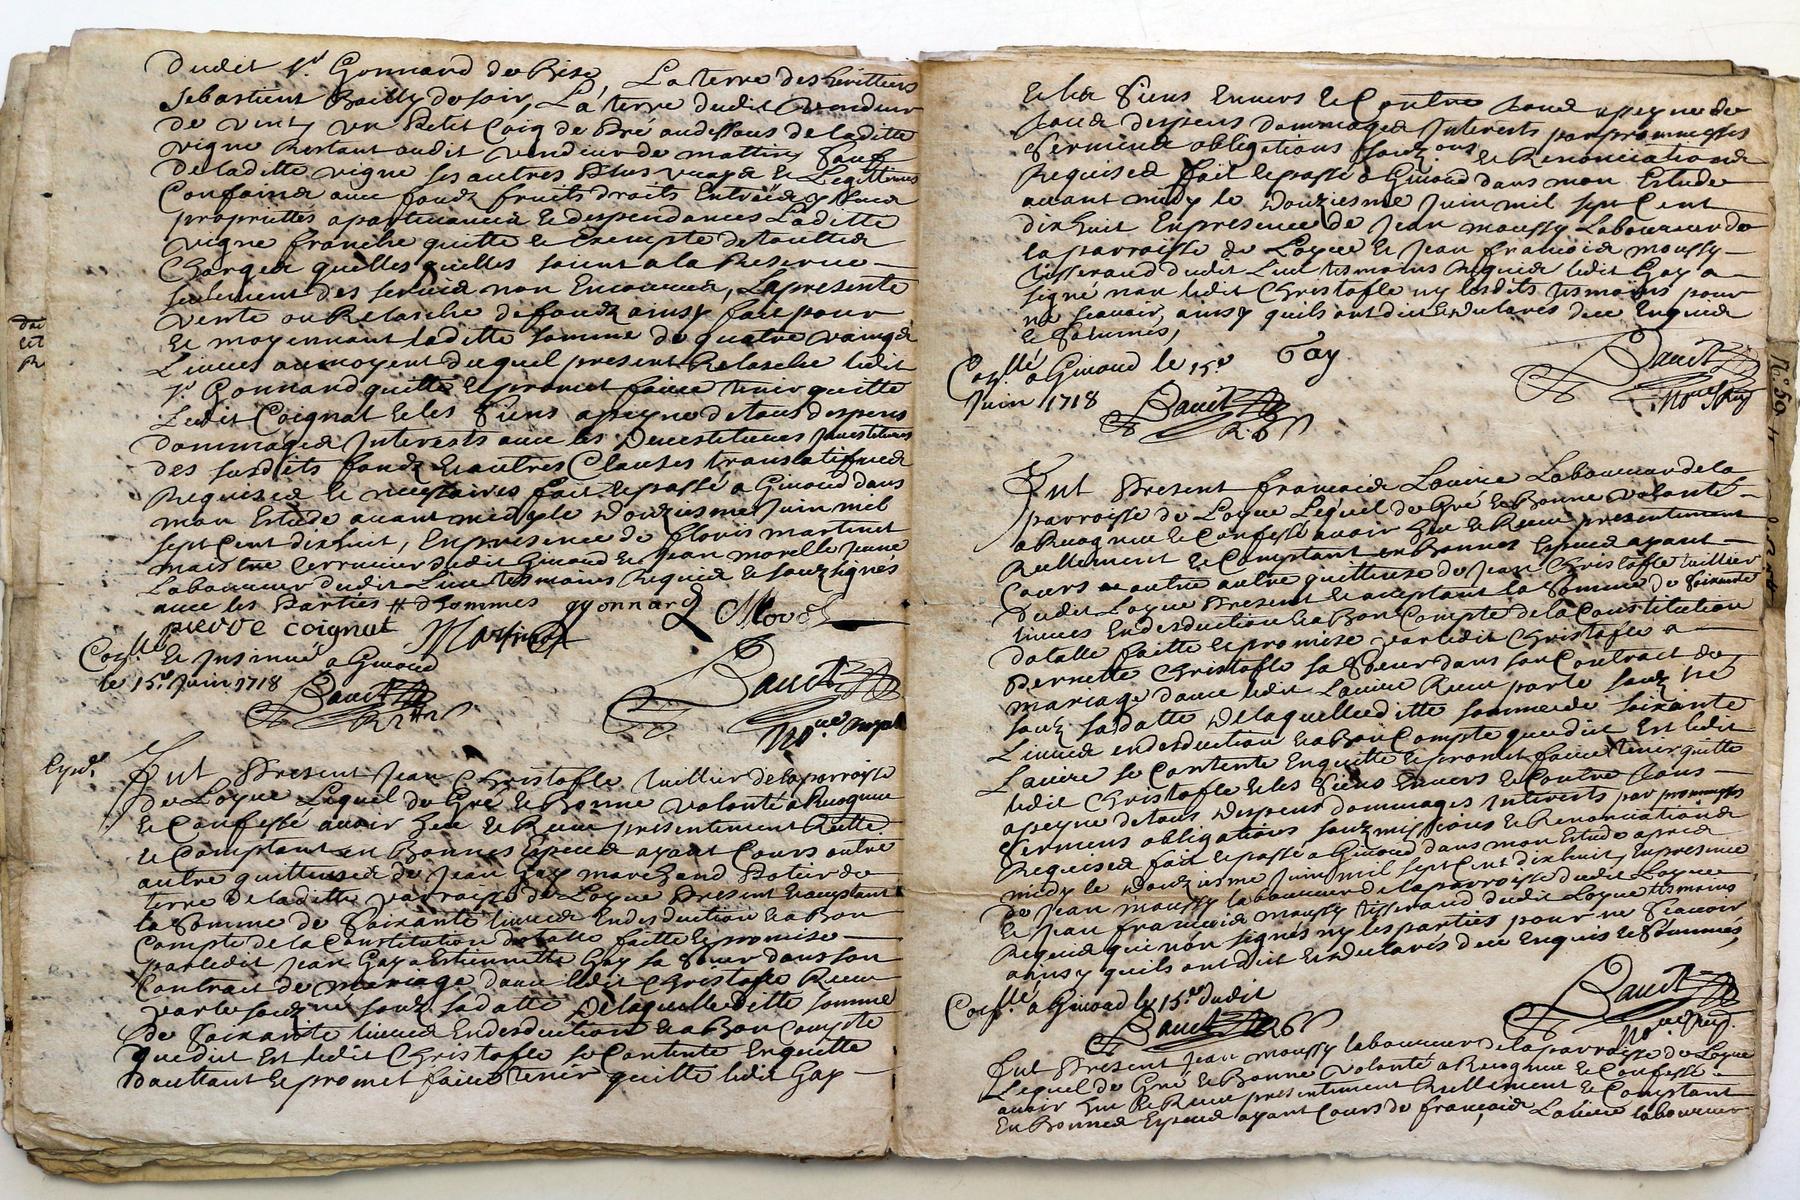 dudit Sr. Gonnard de Bise, La terre des heritiers
Sebastient Bailly de soir, La terre dudit vendeur
de vent, un Petit Coing de Pré audessous de laditte
vigne Restant audit vendeur de mattin, Sauf
de laditte vigne ses autres Plus vrays et Legitimes
Confaina avec fondz fruits droits Entrées yssues
proprietés apartenances et despendances Laditte
vigne franche quitte et Exempte de touttes
Charges quelles quelles soient a la Reserve
seulement des servis non Encourus, La presente
vente ou Relasche de fondz ainsy fait pour
et moyennant laditte somme de quatre vaingt
Livres au moyent duquel present Relasche ledit
Sr. Gonnard quitte et promet faire tenir quitte
Ledit Coignat et les Siens a peyne de tous despens
dommages Interests avec les Devestitures Investitures
des susdits fondz et autres Clauses translatifves
Requises et necessaires fait et passé a Giroud dans
mon Estude avant midy le douziesme Juin mil
sept Cent dixhuit, En presence de Floris martinet
maistre serrurier dudit Giroud et Jean morelle Jeune
Laboureur dudit Lieu tesmoins Requis et souzsignés
avec les Parties # d sommes gyonnard Morel
pierre coignat Martinet
Coll. et Insinué a Giroud
le 15e. Juin 1718
Fut Present Jean Christofle tuillier de la parroisse
de Loyue Lequel de Gré et Bonne volonté a Recognue
et Confessé avoir heu et Receu presentement Reelle.
et Comptant en Bonnes Especes ayant Cours outre
autre quittances de Jean Gay marchand Potier de
terre de laditte parroisse de Loyue Present et acceptant
la Somme de Soixante livres En desduction et a Bon
Compte de la Constitution dotalle faitte et promise
par ledit Jean Gay a Estiennette Gay sa Sœur dans son
Contrat de mariage d'avec ledit Christofle Receu
par le souz ne souz sa datte De laquelle ditte somme
de Soixante livres En desduction et a Bon Compte
que dit Est ledit Christofle se Contente En quitte
d'auttant et promet faire tenir quitte ledit Gay
et les Siens Envers et Contre tous a peyne de
tous despens dommages Interests par prommesses
Serments obligations souz.ons et Renonciations
Requises fait et passé a Giroud dans mon Estude
avant midy le Douziesme Juin mil sept Cent
dixhuit En presence de Jean moussy Laboureur de
la parroisse de Loyue et Jean francois moussy
tisserand dudit Lieu tesmoins Requis ledit Gay a
signé non ledit Christofle ny lesdits tesmoins pour
ne scavoir, ainsy quils ont dit et declarés de ce Enquis
et Sommés,
Gay
Coll. a Giroud le 15e
Juin 1718
Fut Present francois Laviere Laboureur de la
parroisse de Loyue Lequel de Gré et Bonne volonté
a Recognue et Confessé avoir heu et Receu presentement
Reellement et Comptant en Bonnes Especes ayant
Cours outre autre quittance de Jean Christofle tuillier
dudit Loyue Present et acceptant la Somme de Soixante
livres En desduction et a Bon Compte de la Constitution
dotalle faitte et promise par ledit Christofle a
Pernette Christofle sa Sœur dans son Contract de
mariage d'avec ledit Laviere Receu par le souz ne
souz sa datte De laquelle ditte somme de soixante
Livres en desduction et a Bon Compte que dit Est ledit
Laviere se Contente En quitte et promet faire tenir quitte
ledit Christofle et les Siens Envers et Contre tous
a peyne de tous despens dommages Interests par prommesses
Serments obligations souzmissions et Renonciations
Requises fait et passé a Giroud dans mon Estude apres
midy le Douziesme Juin mil sept Cent dixhuit, En presence
de Jean moussy laboureur de la parroisse dudit Loyue
et Jean francois moussy tisserand dudit Loyue tesmoins
Requis qui non signés ny les parties pour ne scavoir
ainsy quils ont dit et declarés de ce Enquis et Sommés,
Coll. a Giroud le 15e dudit
Fut Present Jean moussy laboureur de la parroisse de Loyue
Lequel de Gré et Bonne volonté a Recognue et Confessé
avoir heu et Receu presentement Reellement et Comptant
En Bonnes Especes ayant Cours de francois Laviere laboureur